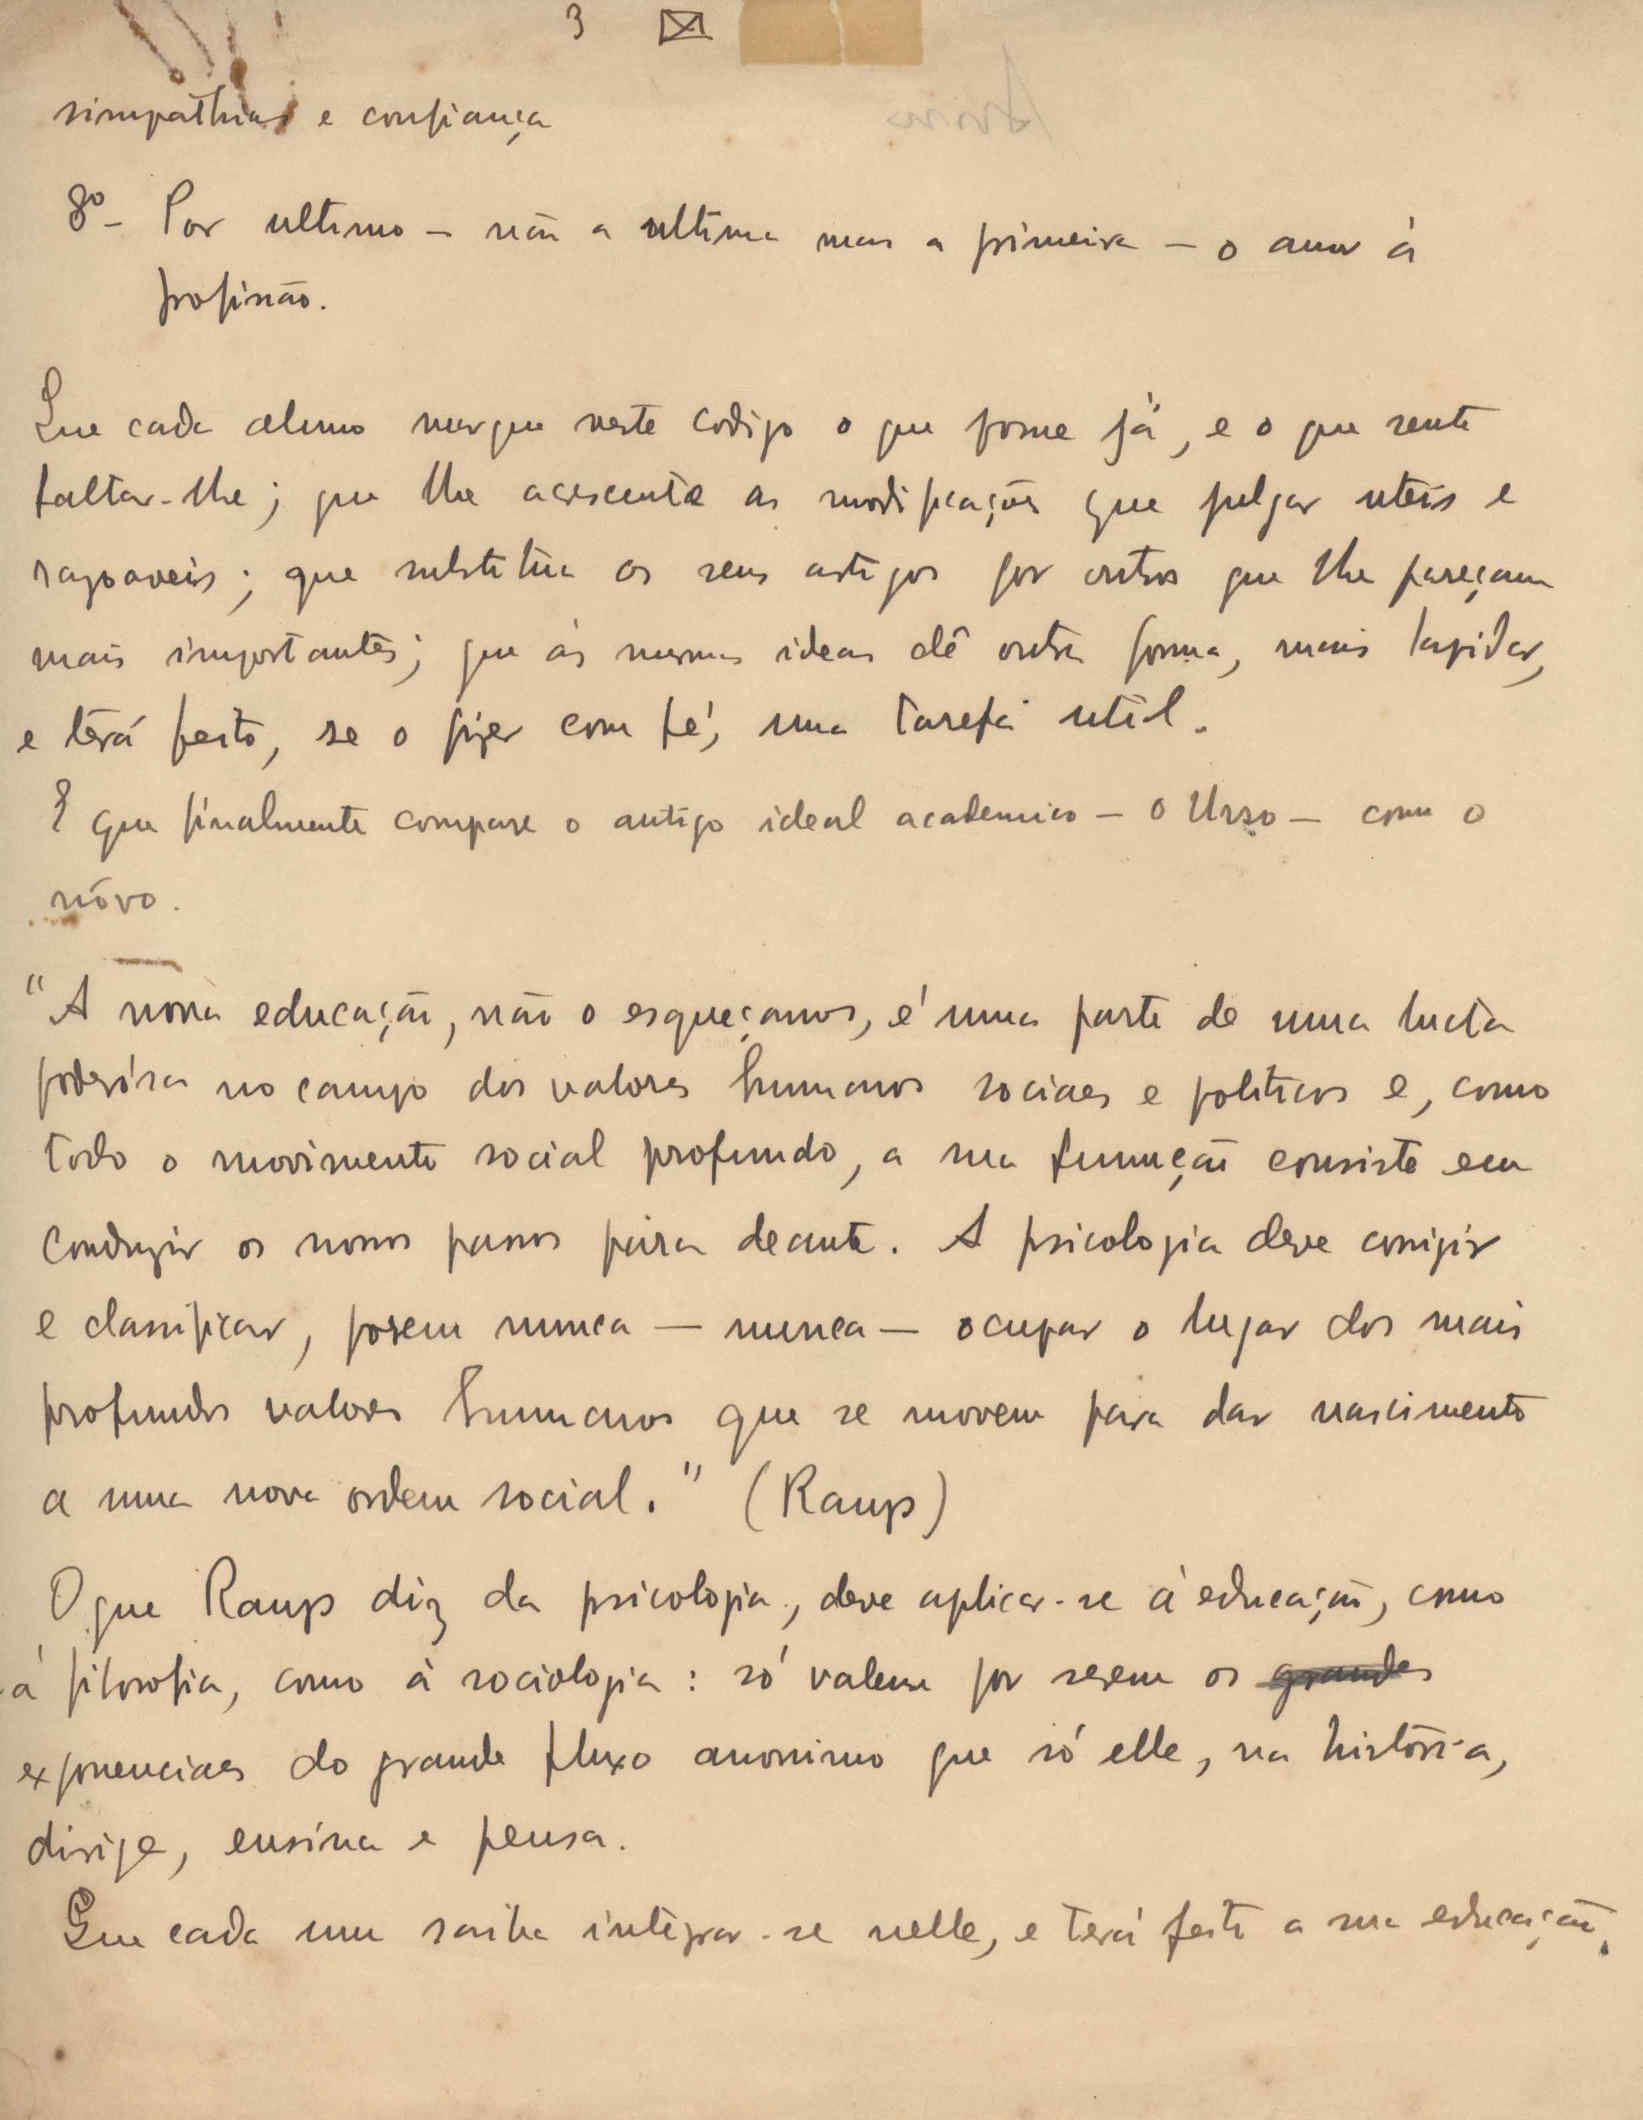 3
simpathias e confiança
8º - Por ultimo — não a ultima mas a primeira — o amor á
profissão.
Que cada aluno marque neste codigo o que possue já, e o que sente
faltar-lhe; que lhe acrescente as modificações que julgar uteis e
razoaveis; que substitua os seus artigos por outros que lhe pareçam
mais importantes; que ás mesmas ideas dê outra forma, mais lapidar,
e terá feito, se o fizer com fé, uma tarefa util.
E que finalmente compare o antigo ideal academico — o Urso — com o
nôvo.
"A nova educação, não o esqueçamos, é uma parte de uma lucta
poderósa no campo dos valores humanos sociaes e politicos e, como
todo o movimento social profundo, a sua funnção consiste em
conduzir os nossos passos para deante. A psicologia deve corrigir
e classificar, porem nunca — nunca — ocupar o lugar dos mais
profundos valores humanos que se movem para dar nascimento
a uma nova ordem social." (Raup)
O que Raup diz da psicologia, deve aplicar-se á educação, como
á filosofia, como á sociologia: só valem por serem os grandes
exponenciaes do grande fluxo anonimo que só elle, na história,
dirige, ensina e pensa.
Que cada um saiba integrar-se nelle, e terá feito a sua educação.